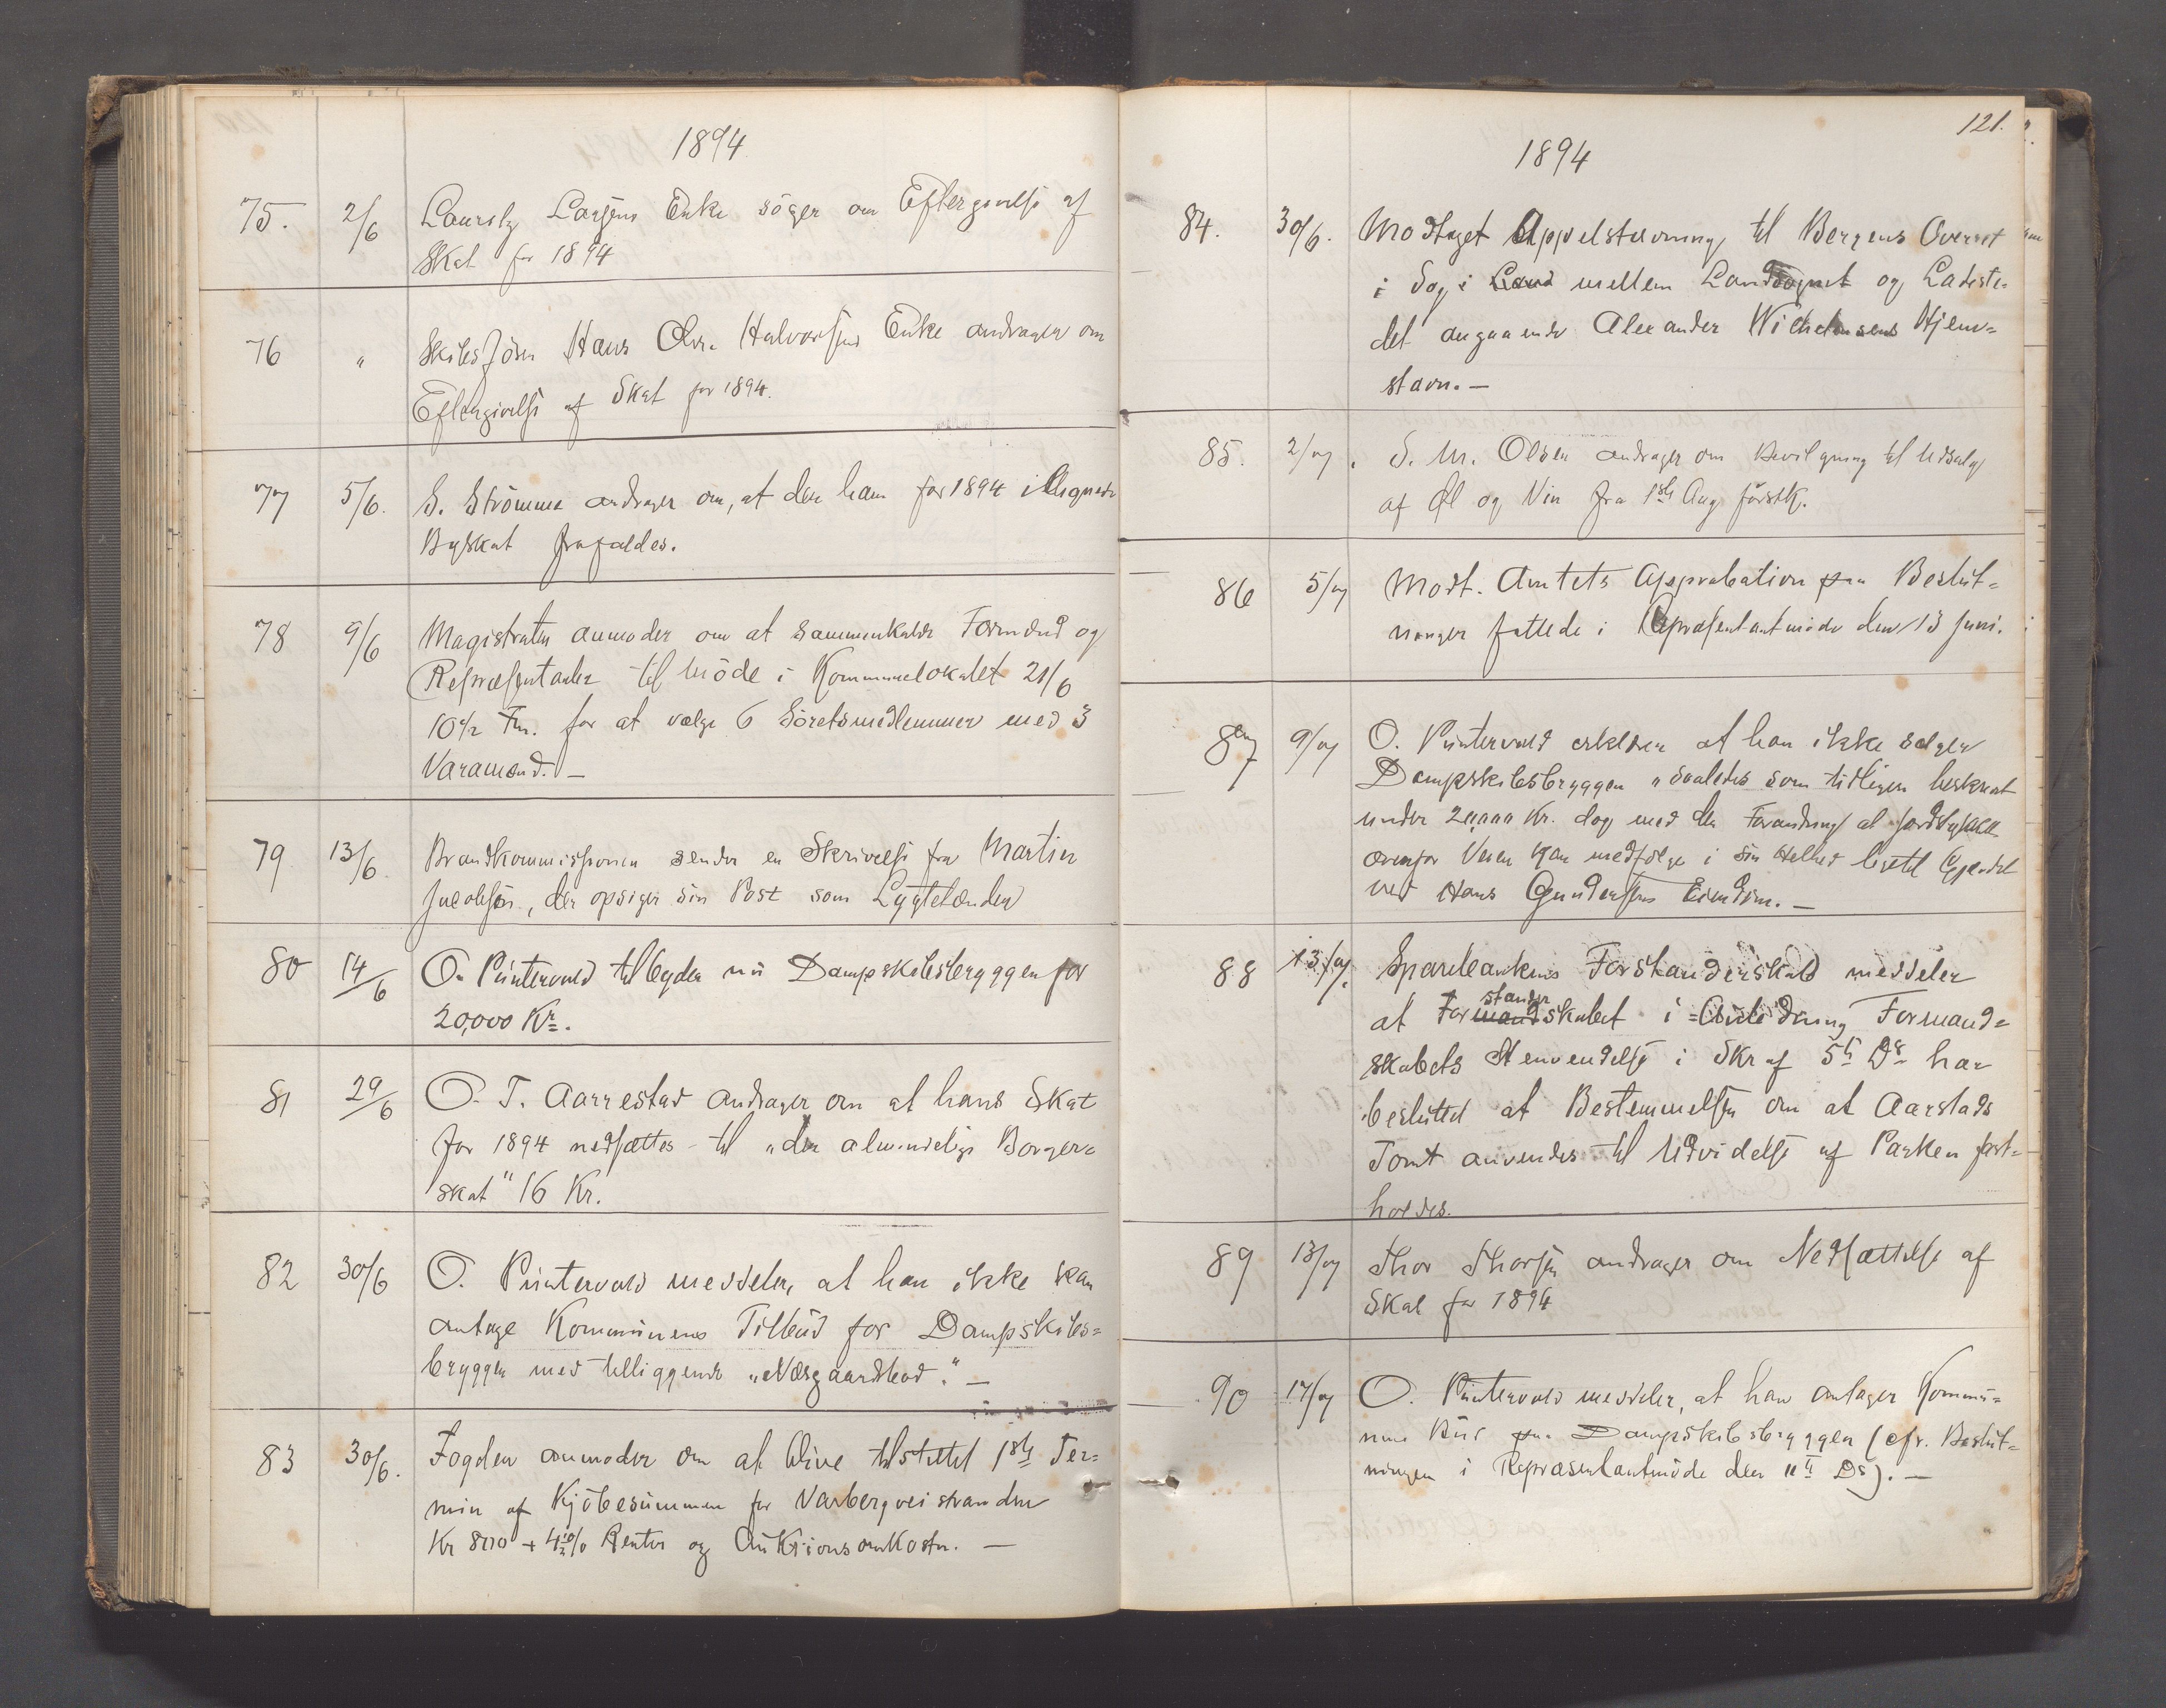 1894
75. 2/6 Lauritz Larsens Enke söger om Eftergivelse af
Skat for 1894
76 " Skibsförer Hans Chr. Halvorsens Enke andrager om
Eftergivelse af Skat for 1894.
77 5/6. S. Strömme andrager om, at den ham for 1894 ilignede
Byskat frafaldes.
78 9/6 Magistraten anmoder om at sammenkalde Formænd og
Repræsentanter til Möde i Kommunelokalet 21/6
10½ Fm. for at vælge 6 Söretsmedlemmer med 3
Varamænd. —
79 13/6 Brandkommissionen sender en Skrivelse fra Martin
Jacobsen, der opsiger sin Post som Lygtetænder
80 14/6 O. Puntervold tilbyder nu Dampskibsbryggen for
20,000 Kr.
81 29/6 O. T. Aarrestad andrager om at hans Skat
for 1894 nedsættes til "den almindelige Borger=
skat" 16 Kr.
82 30/6 O. Puntervold meddeler, at han ikke kan
antage Kommunens Tilbud for Dampskibs=
bryggen med tilliggende "Næsgaardsbod". —
83 30/6. Fogden anmoder om at blive tilstillet 1ste Ter=
min af Kjöbesummen for Varbergveistranden
Kr 800 + 4½% Renter og Auktionsomkostn. —
121.
1894
84. 30/6. Modtaget Appelstævning til Bergens Overret
i Sag i Land mellem Landsognet og Ladeste=
det angaaende Alexander Wilhelmsens Hjem=
stavn. —
85. 2/7. S. M. Olsen andrager om Bevilgning til Udsalg
af Øl og Vin fra 1ste Aug. förstk.
86 5/7 Modt. Amtets Approbation paa Beslut=
ninger fattede i Repræsentantmöde den 13 Juni.
87 9/7 O. Puntervold erklærer at han ikke sælger
Dampskibsbryggen "saaledes som tidligere beskrevet
under 20,000 Kr. dog med den Forandring at Jordstykket
ovenfor Veien kan medfölge i sin Helhed ligetil Gjerdet
ved Hans Gundersens Eiendom. —
88 13/7. Sparebankens Forstanderskab meddeler
at Formandskabet stander i Anledning Formand=
skabets Henvendelse i Skr af 5te Ds har
besluttet at Bestemmelsen om at Aarstads
Tomt anvendes til Udvidelse af Parken fast=
holdes.
89 13/7 Thor Thorsen andrager om Nedsættelse af
Skat for 1894
90 17/7 O. Puntervold meddeler, at han antager Kommu=
nens Bud paa Dampskibsbryggen (cfr. Beslut=
ningen i Repræsentantmöde den 11te Ds). —